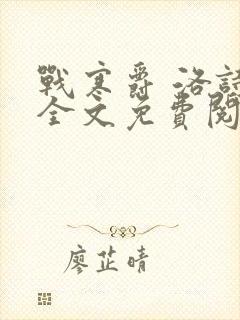 戰寒爵 洛詩
全文免費閱
廖芷晴